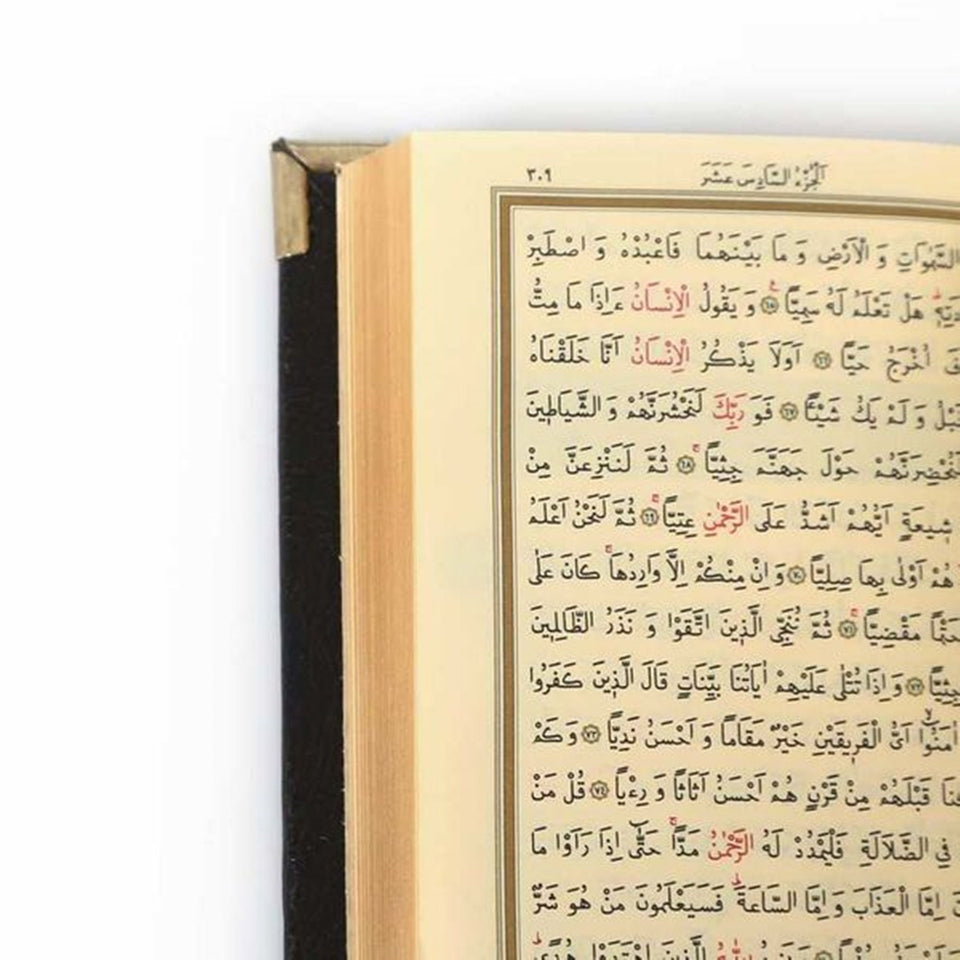 اَلْجُزْءُ السَّادِسَ عَشَرَ
٣٠٩
السَّمٰوَاتِ وَ الْاَرْضِ وَ مَا بَيْنَهُمَا فَاعْبُدْهُ وَ اصْطَبِرْ
هَلْ تَعْلَمُ لَهُ سَمِيًّا ﴿٦٥﴾ وَ يَقُولُ الْاِنْسَانُ ءَاِذَا مَا مِتُّ
اُخْرَجُ حَيًّا ﴿٦٦﴾ اَوَلَا يَذْكُرُ الْاِنْسَانُ اَنَّا خَلَقْنَاهُ
وَ لَمْ يَكُ شَيْـًٔا ﴿٦٧﴾ فَوَ رَبِّكَ لَنَحْشُرَنَّهُمْ وَ الشَّيَاطٖينَ
لَنُحْضِرَنَّهُمْ حَوْلَ جَهَنَّمَ جِثِيًّا ﴿٦٨﴾ ثُمَّ لَنَنْزِعَنَّ مِنْ
شٖيعَةٍ اَيُّهُمْ اَشَدُّ عَلَى الرَّحْمٰنِ عِتِيًّا ﴿٦٩﴾ ثُمَّ لَنَحْنُ اَعْلَمُ
هُمْ اَوْلٰى بِهَا صِلِيًّا ﴿٧٠﴾ وَ اِنْ مِنْكُمْ اِلَّا وَارِدُهَا كَانَ عَلٰى
حَتْمًا مَقْضِيًّا ﴿٧١﴾ ثُمَّ نُنَجِّى الَّذٖينَ اتَّقَوْا وَ نَذَرُ الظَّالِمٖينَ
جِثِيًّا ﴿٧٢﴾ وَ اِذَا تُتْلٰى عَلَيْهِمْ اٰيَاتُنَا بَيِّنَاتٍ قَالَ الَّذٖينَ كَفَرُوا
اٰمَنُوا اَىُّ الْفَرٖيقَيْنِ خَيْرٌ مَقَامًا وَ اَحْسَنُ نَدِيًّا ﴿٧٣﴾ وَ كَمْ
قَبْلَهُمْ مِنْ قَرْنٍ هُمْ اَحْسَنُ اَثَاثًا وَ رِءْيًا ﴿٧٤﴾ قُلْ مَنْ
فِى الضَّلَالَةِ فَلْيَمْدُدْ لَهُ الرَّحْمٰنُ مَدًّا حَتّٰى اِذَا رَاَوْا مَا
اِمَّا الْعَذَابَ وَ اِمَّا السَّاعَةَ فَسَيَعْلَمُونَ مَنْ هُوَ شَرٌّ